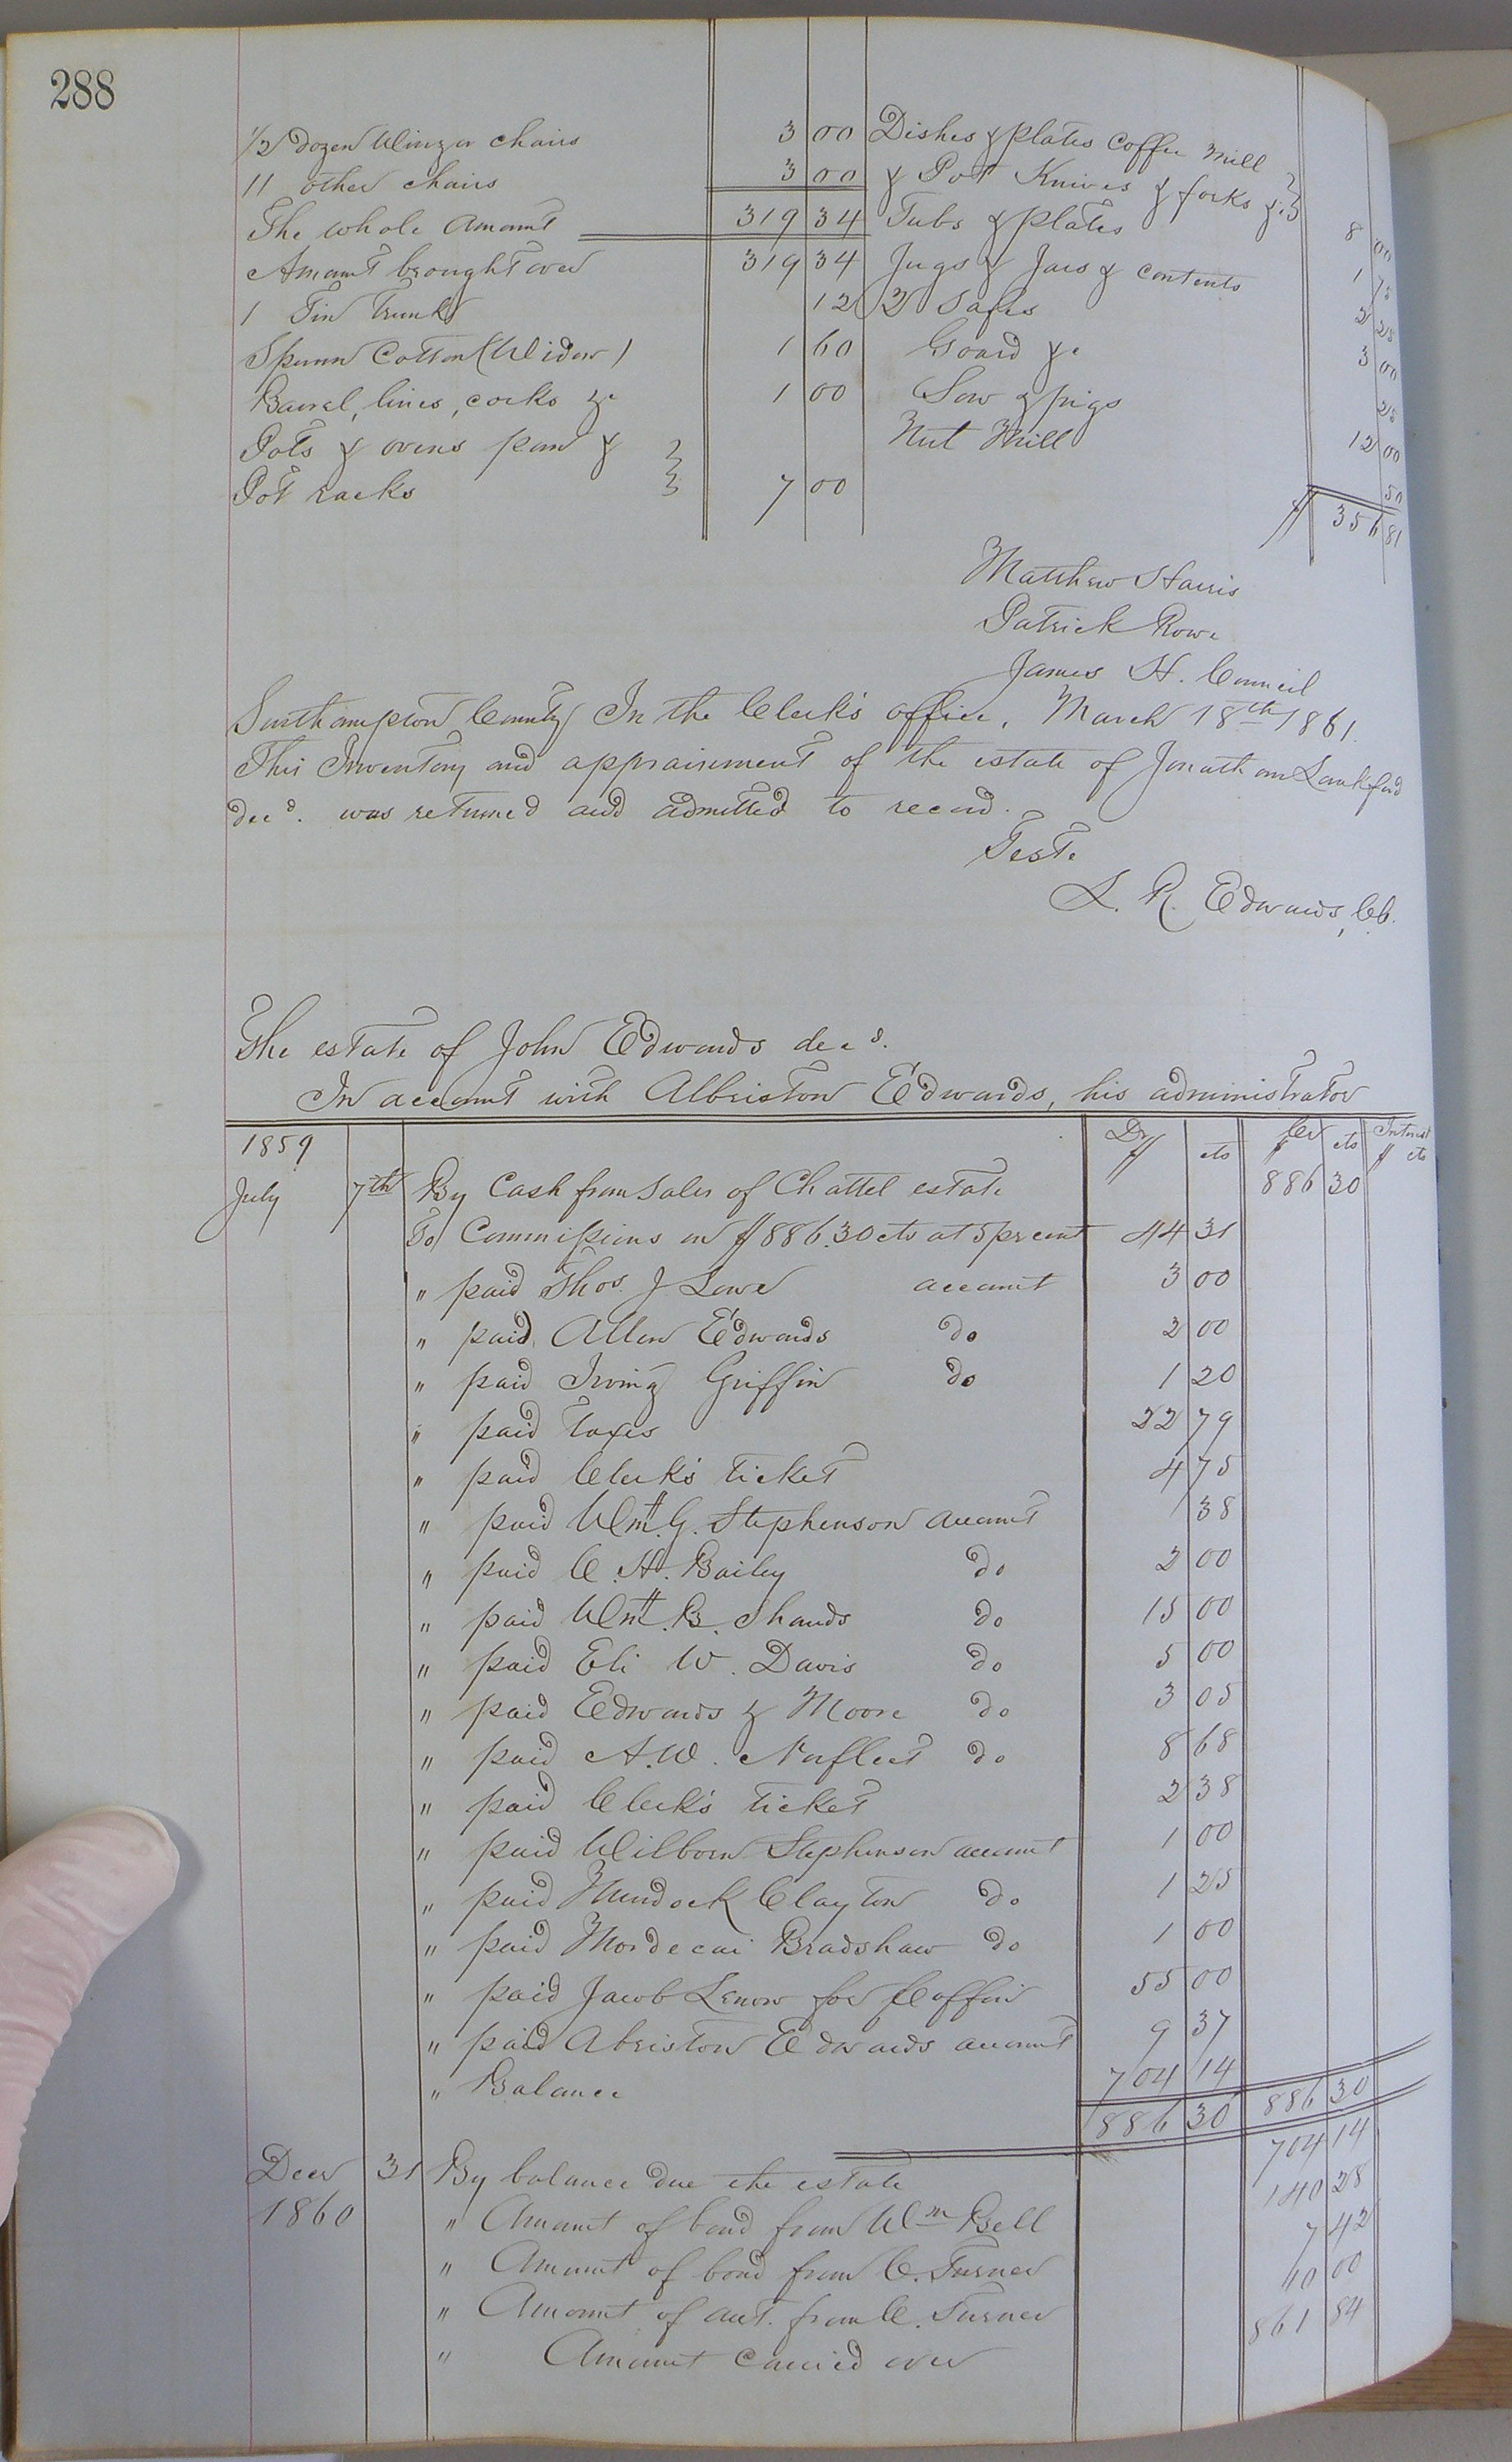 288
1/2 dozen Winzor chairs 3 00
11 other chairs 3 00
The whole amount 319 34
Amount brought over 319 34
1 Tin Trunk 12
Spunn Cotton (Widow) 1 60
Barrel, lines, corks &c 1 00
Pots & ovens pan &
Pot racks 7 00
Dishes & plates Coffee Mill
& Pot Knives & forks &c 8 00
Tubs & plates 1 75
Jugs & Jars & contents 2 25
2 Safes 3 00
Goard &c 25
Sow & pigs 12 00
Nut Mill 50
$ 356 81
Matthew Harris
Patrick Rowe
James H. Council
Southampton County In the Clerk's office, March 18th 1861.
This Inventory and appraisement of the estate of Jonathan Lankford
decd. was returned and admitted to record.
Teste
L. R. Edwards, CC.
The estate of John Edwards decd.
In account with Albriston Edwards, his administrator
1859 Dr $ cts Cr $ cts Interest $ cts
July 7th By Cash from Sales of Chattel estate 886 30
To Commissions on $886.30 cts at 5 pr cent 44 31
" paid Thos. J Lowe account 3 00
" paid Allen Edwards do 2 00
" paid Irving Griffin do 1 20
" paid taxes 22 79
" paid Clerk's ticket 4 75
" paid Wm. G. Stephenson account 1 38
" paid C. H. Bailey do 2 00
" paid Wm. B. Shands do 15 00
" paid Eli W. Davis do 5 00
" paid Edwards & Moore do 3 05
" paid A. W. Norfleet do 8 68
" paid Clerk's ticket 2 38
" paid Wilborn Stephenson account 1 00
" paid Murdock Clayton do 1 25
" paid Mordecai Bradshaw do 1 00
" paid Jacob Lenow for Coffin 55 00
" paid Abriston Edwards account 9 37
" Balance 704 14
886 30 886 30
Decr 31 By balance due the estate 704 14
1860 " Amount of bond from Wm Bell 140 28
" Amount of bond from C. Turner 7 42
" Amount of act. from C. Turner 10 00
" Amount carried over 861 84